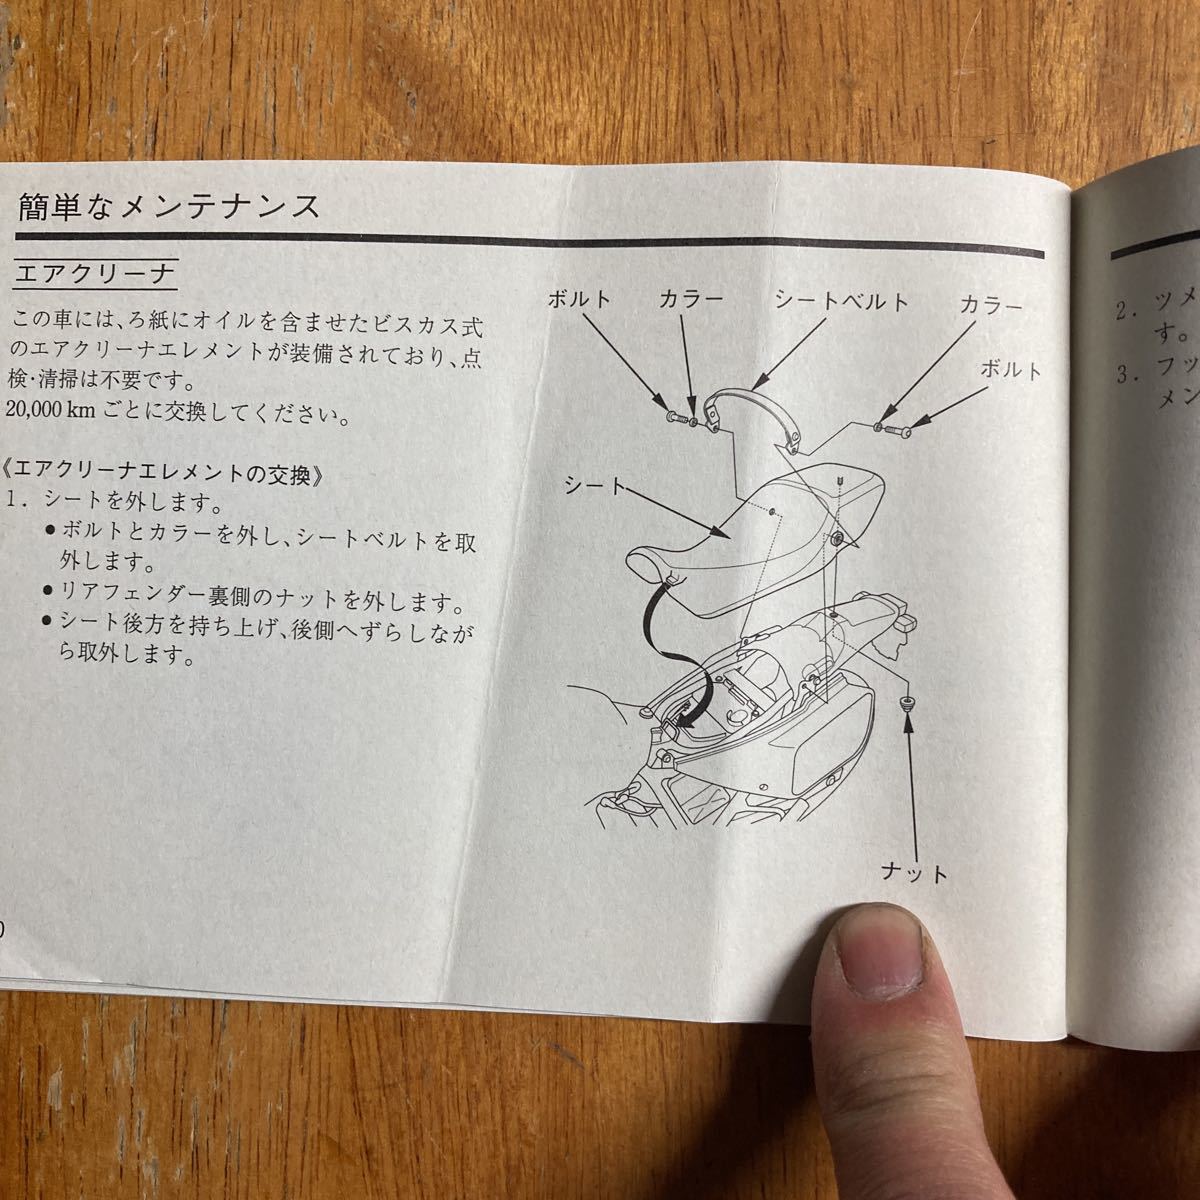 簡単なメンテナンス
エアクリーナ
この車には、ろ紙にオイルを含ませたビスカス式
のエアクリーナエレメントが装備されており、点
検・清掃は不要です。
20,000 kmごとに交換してください。
《エアクリーナエレメントの交換》
1. シートを外します。
●ボルトとカラーを外し、シートベルトを取
外します。
●リアフェンダー裏側のナットを外します。
●シート後方を持ち上げ、後側へずらしなが
ら取外します。
ボルト カラー シートベルト カラー
ボルト
シート
ナット
2. ツメ
す。
3. フッ
メン